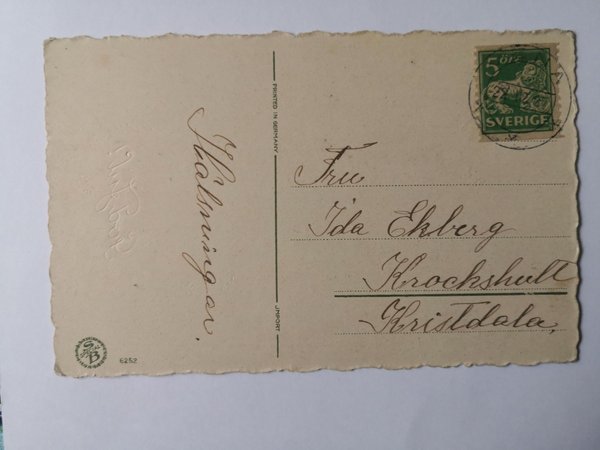 Hälsningar.
PRINTED IN GERMANY
IMPORT
6252
5 ÖRE
SVERIGE
Fru
Ida Ekberg
Krockshult
Kristdala.